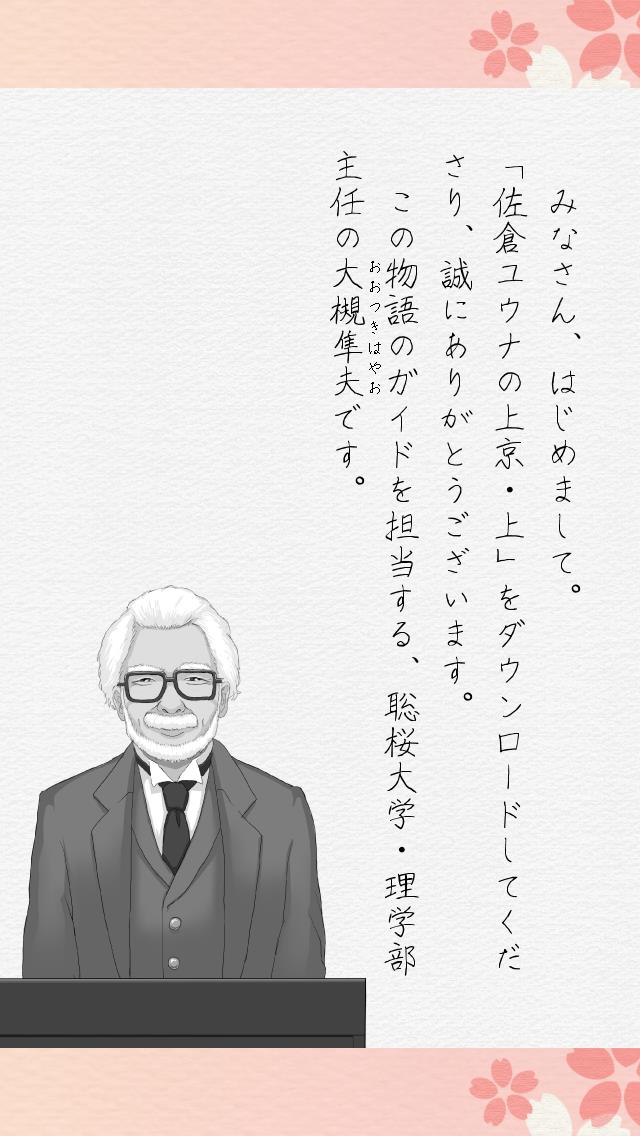 みなさん、はじめまして。
「佐倉ユウナの上京・上」をダウンロードしてくだ
さり、誠にありがとうございます。
この物語のガイドを担当する、聡桜大学・理学部
おおつきはやお
主任の大槻隼夫です。